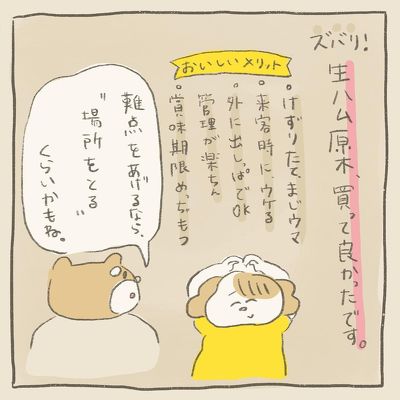 ズバリ!
生ハム原木、買って良かったです。
おいしいメリット
・けずりたて、まじウマ
・来客時にウケる
・外に出しっぱでOK
管理が楽ちん
・賞味期限めっちゃもつ
難点をあげるなら、
"場所をとる"
くらいかもね。